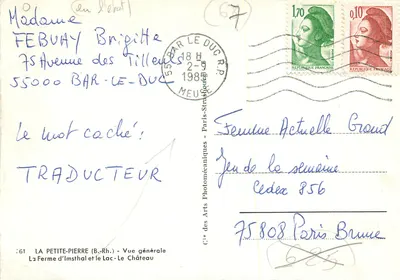 Madame
FEBVAY Brigitte
75 Avenue des Tilleuls
55000 BAR-LE-DUC
Le mot caché:
TRADUCTEUR
361 LA PETITE-PIERRE (B.-Rh.) - Vue générale
La Ferme d'Imsthal et le Lac - Le Château
Cie des Arts Photomécaniques - Paris-Strasbourg
67
55 BAR LE DUC R.P.
18 H
2-9
1985
MEUSE
1,70
0,10
Femme Actuelle Grand
Jeu de la semaine
Cedex 856
75808 Paris Brune